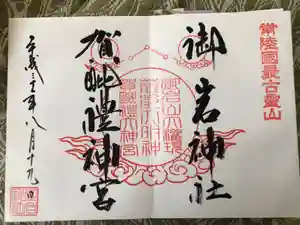 常陸國最古霊山
御岩神社
賀毗禮神宮
平成三十年八月十九日